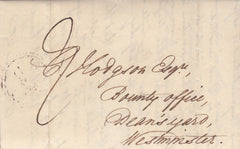 Hodgson Esqr.
Bounty office,
Deans yard,
Westminster.